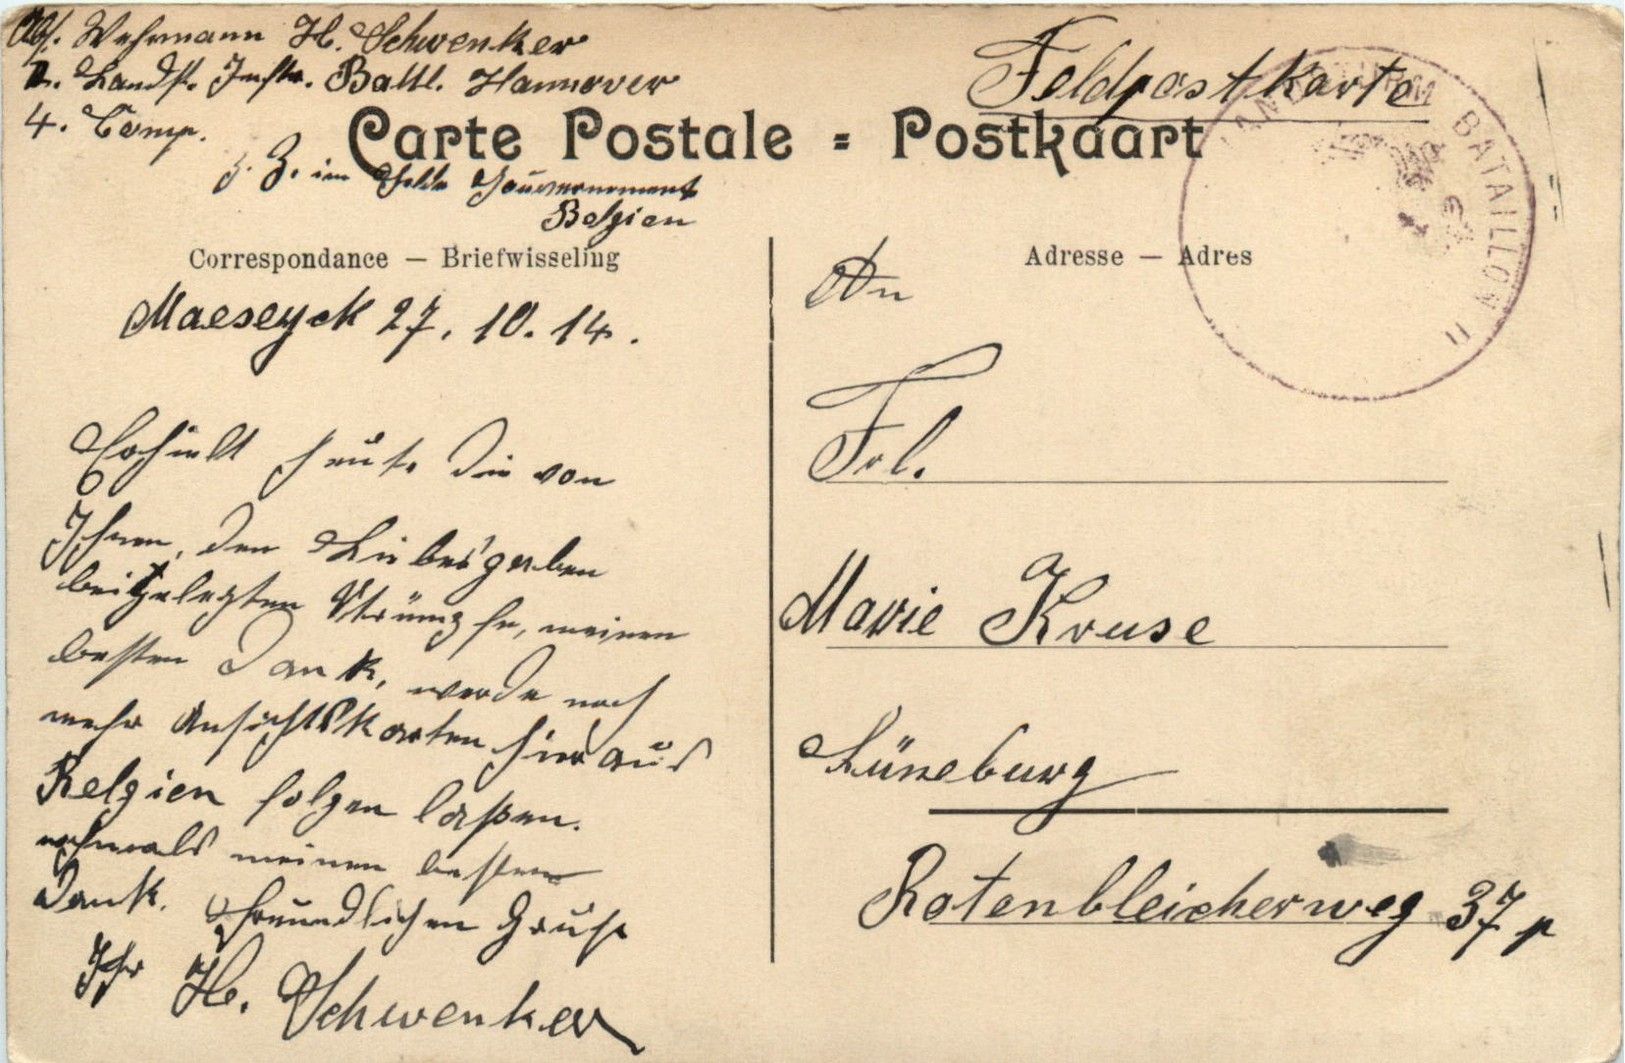 Abs. Wehrmann H. Schwenker
2. Landst. Inftr. Battl. Hannover
4. Comp.
z. Z. im Felde Gouvernement
Belgien
Feldpostkarte
Carte Postale = Postkaart
LANDSTURM BATAILLON II
Correspondance — Briefwisseling
Adresse — Adres
Maeseyck 27. 10. 14.
Erhielt heute die von
Ihnen, den Liebesgaben
beigelegten Strümpfe, meinen
besten Dank, werde noch
mehr Ansichtskarten hier aus
Belgien folgen laßen.
nochmals meinen besten
Dank. Freundlichen Gruß
Ihr H. Schwenker
An
Frl.
Marie Kruse
Lüneburg
Rotenbleicherweg 37 p